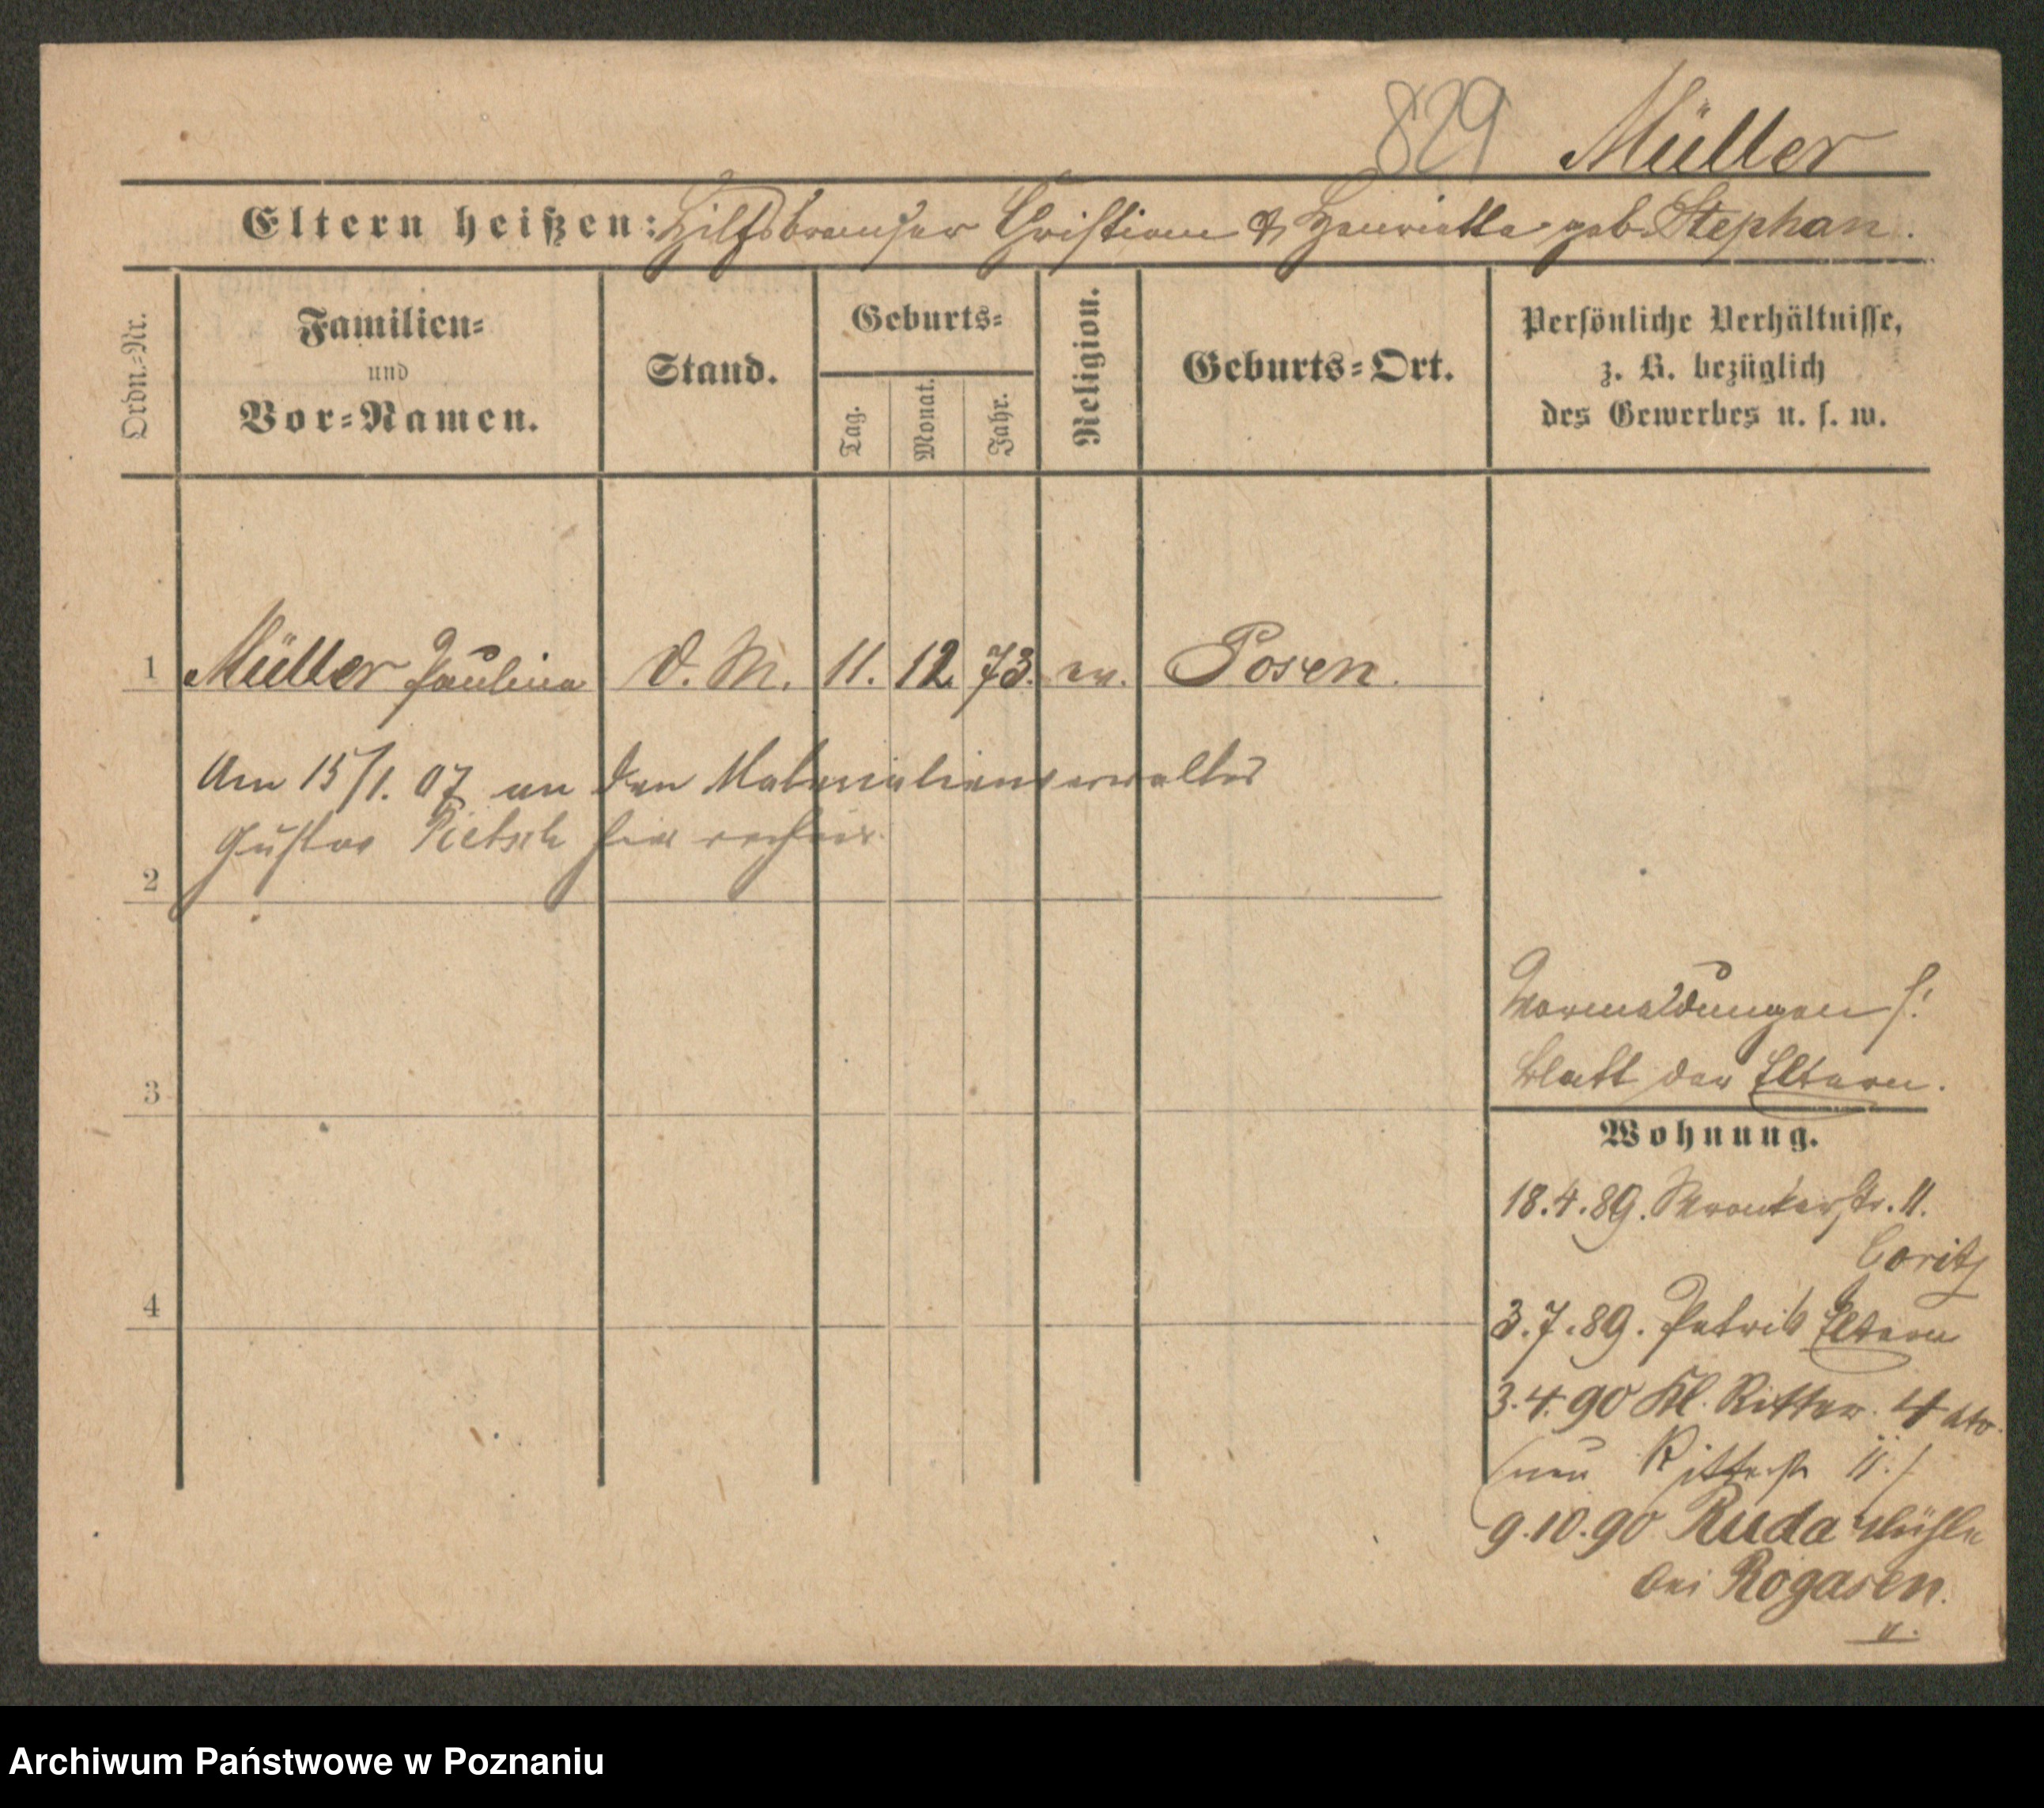 829 Müller
Eltern heißen: Hilfsbremser Christian & Henriette geb. Stephan.
Ordn.=Nr.
Familien=
und
Vor=Namen.
Stand.
Geburts=
Tag.
Monat.
Jahr.
Religion.
Geburts=Ort.
Persönliche Verhältnisse,
z. B. bezüglich
des Gewerbes u. s. w.
1 Müller Paulina D. M. 11. 12. 73. ev. Posen.
Am 15/1. 07 an den Materialienverwalter
Gustav Pietsch hier verheir.
2
3
4
Vormeldungen s.
Blatt der Eltern.
Wohnung.
18.4.89. Wronkerstr. 11.
Coritz
3.7.89. Patrib Eltern
3.4.90 Kl. Ritter. 4 dto.
(neu Ritterstr 11.)
9.10.90 Ruda Mühle
bei Rogasen.